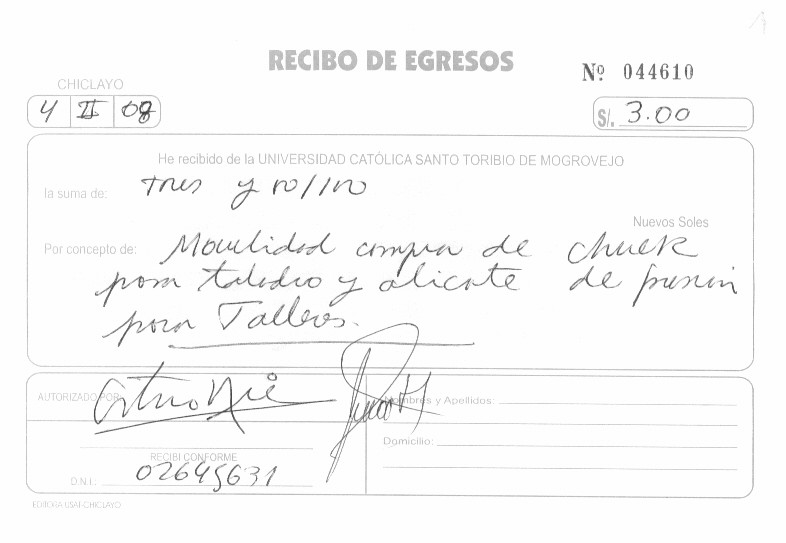 RECIBO DE EGRESOS
Nº 044610
CHICLAYO
4 II 08
S/. 3.00
He recibido de la UNIVERSIDAD CATÓLICA SANTO TORIBIO DE MOGROVEJO
la suma de: Tres y 00/100
Nuevos Soles
Por concepto de: Movilidad compra de chuck
para taladro y alicate de presión
para Talleres.
AUTORIZADO POR:
Nombres y Apellidos:
Domicilio:
RECIBI CONFORME
D.N.I.: 02645631
EDITORA USAT-CHICLAYO